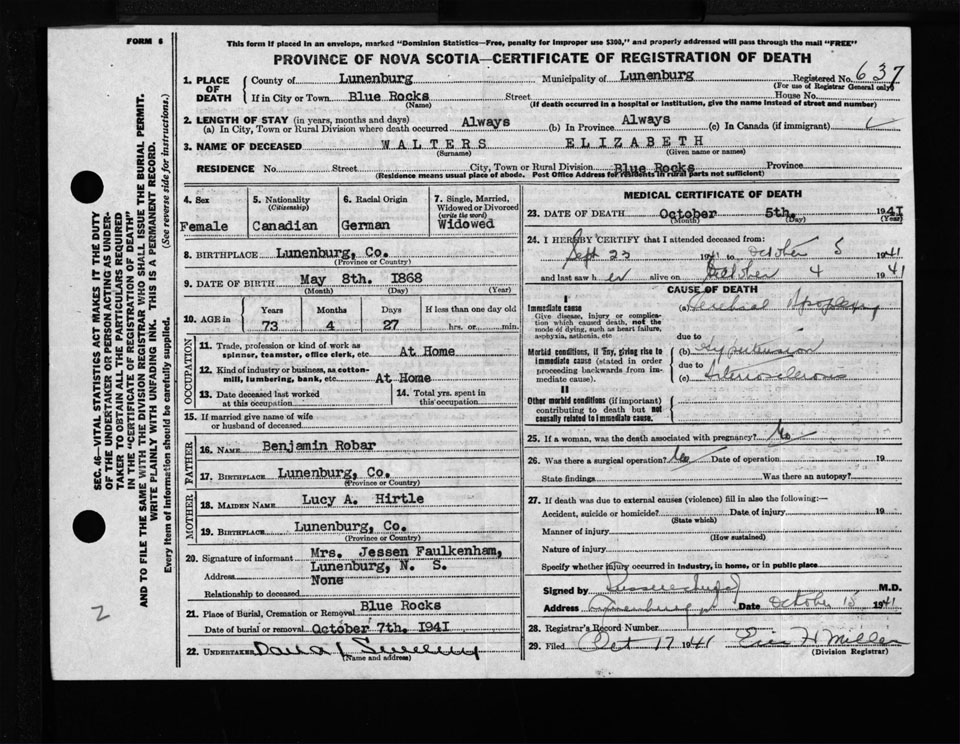 FORM 6
This form if placed in an envelope, marked "Dominion Statistics—Free, penalty for improper use $300," and properly addressed will pass through the mail "FREE"
PROVINCE OF NOVA SCOTIA—CERTIFICATE OF REGISTRATION OF DEATH
1. PLACE OF DEATH
County of Lunenburg Municipality of Lunenburg Registered No. 637
(For use of Registrar General only)
If in City or Town Blue Rocks Street House No.
(Name) (If death occurred in a hospital or institution, give the name instead of street and number)
2. LENGTH OF STAY (in years, months and days)
(a) In City, Town or Rural Division where death occurred Always (b) In Province Always (c) In Canada (if immigrant)
3. NAME OF DECEASED WALTERS ELIZABETH
(Surname) (Given name or names)
RESIDENCE No. Street City, Town or Rural Division Blue Rocks Province
(Residence means usual place of abode. Post Office Address for residents in rural parts not sufficient)
4. Sex
Female
5. Nationality
(Citizenship)
Canadian
6. Racial Origin
German
7. Single, Married, Widowed or Divorced
(write the word)
Widowed
8. BIRTHPLACE Lunenburg, Co.
(Province or Country)
9. DATE OF BIRTH May 8th. 1868
(Month) (Day) (Year)
10. AGE in
Years Months Days If less than one day old
73 4 27 hrs. or min.
OCCUPATION
11. Trade, profession or kind of work as spinner, teamster, office clerk, etc. At Home
12. Kind of industry or business, as cotton-mill, lumbering, bank, etc. At Home
13. Date deceased last worked at this occupation
14. Total yrs. spent in this occupation
15. If married give name of wife or husband of deceased
FATHER
16. NAME Benjamin Robar
17. BIRTHPLACE Lunenburg, Co.
(Province or Country)
MOTHER
18. MAIDEN NAME Lucy A. Hirtle
19. BIRTHPLACE Lunenburg, Co.
(Province or Country)
20. Signature of informant Mrs. Jessen Faulkenham,
Address Lunenburg, N. S.
Relationship to deceased None
21. Place of Burial, Cremation or Removal Blue Rocks
Date of burial or removal October 7th. 1941
22. UNDERTAKER
(Name and address)
MEDICAL CERTIFICATE OF DEATH
23. DATE OF DEATH October 5th. 1941
(Month) (Day) (Year)
24. I HEREBY CERTIFY that I attended deceased from:
Sept 23 1941 to October 5 1941
and last saw her alive on October 4 1941
CAUSE OF DEATH
I
Immediate cause
Give disease, injury or complication which caused death, not the mode of dying, such as heart failure, asphyxia, asthenia, etc
(a) Cerebral Apoplexy
due to
Morbid conditions, if any, giving rise to immediate cause (stated in order proceeding backwards from immediate cause).
(b) Hypertension
due to
(c) Arteriosclerosis
II
Other morbid conditions (if important) contributing to death but not causally related to immediate cause.
25. If a woman, was the death associated with pregnancy? No
26. Was there a surgical operation? No Date of operation 19
State findings Was there an autopsy?
27. If death was due to external causes (violence) fill in also the following:
Accident, suicide or homicide? Date of injury 19
(State which)
Manner of injury
(How sustained)
Nature of injury
Specify whether injury occurred in industry, in home, or in public place
Signed by M.D.
Address Lunenburg Date October 15 1941
28. Registrar's Record Number
29. Filed Oct 17 1941 H Miller
(Division Registrar)
SEC. 46—VITAL STATISTICS ACT MAKES IT THE DUTY OF THE UNDERTAKER OR PERSON ACTING AS UNDERTAKER TO OBTAIN ALL THE PARTICULARS REQUIRED IN THE "CERTIFICATE OF REGISTRATION OF DEATH" AND TO FILE THE SAME WITH THE DIVISION REGISTRAR WHO SHALL ISSUE THE BURIAL PERMIT.
WRITE PLAINLY WITH UNFADING INK. THIS IS A PERMANENT RECORD.
Every item of information should be carefully supplied. (See reverse side for instructions.)
2